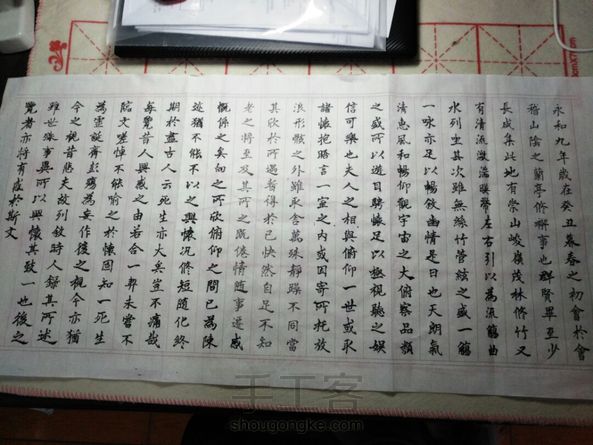 永和九年歲在癸丑暮春之初會於會
稽山陰之蘭亭脩禊事也群賢畢至少
長咸集此地有崇山峻嶺茂林脩竹又
有清流激湍暎帶左右引以為流觴曲
水列坐其次雖無絲竹管絃之盛一觴
一咏亦足以暢敘幽情是日也天朗氣
清惠風和暢仰觀宇宙之大俯察品類
之盛所以遊目騁懷足以極視聽之娛
信可樂也夫人之相與俯仰一世或取
諸懷抱晤言一室之內或因寄所托放
浪形骸之外雖取舍萬殊靜躁不同當
其欣於所遇暫得於己快然自足不知
老之將至及其所之既倦情隨事遷感
慨係之矣向之所欣俯仰之間已為陳
迹猶不能不以之興懷況脩短隨化終
期於盡古人云死生亦大矣豈不痛哉
每覽昔人興感之由若合一契未嘗不
臨文嗟悼不能喻之於懷固知一死生
為虛誕齊彭殤為妄作後之視今亦猶
今之視昔悲夫故列敘時人錄其所述
雖世殊事異所以興懷其致一也後之
覽者亦將有感於斯文
手工客
shougongke.com